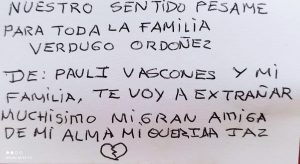 NUESTRO SENTIDO PESAME
PARA TODA LA FAMILIA
VERDUGO ORDOÑEZ
DE: PAULI VASCONES Y MI
FAMILIA, TE VOY A EXTRAÑAR
MUCHISIMO MI GRAN AMIGA
DE MI ALMA MI QUERIDA JAZ